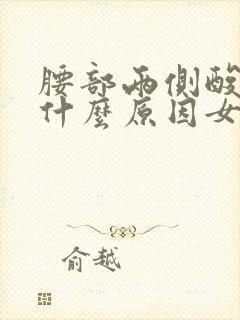 腰部兩側酸
什麼原因女
俞越